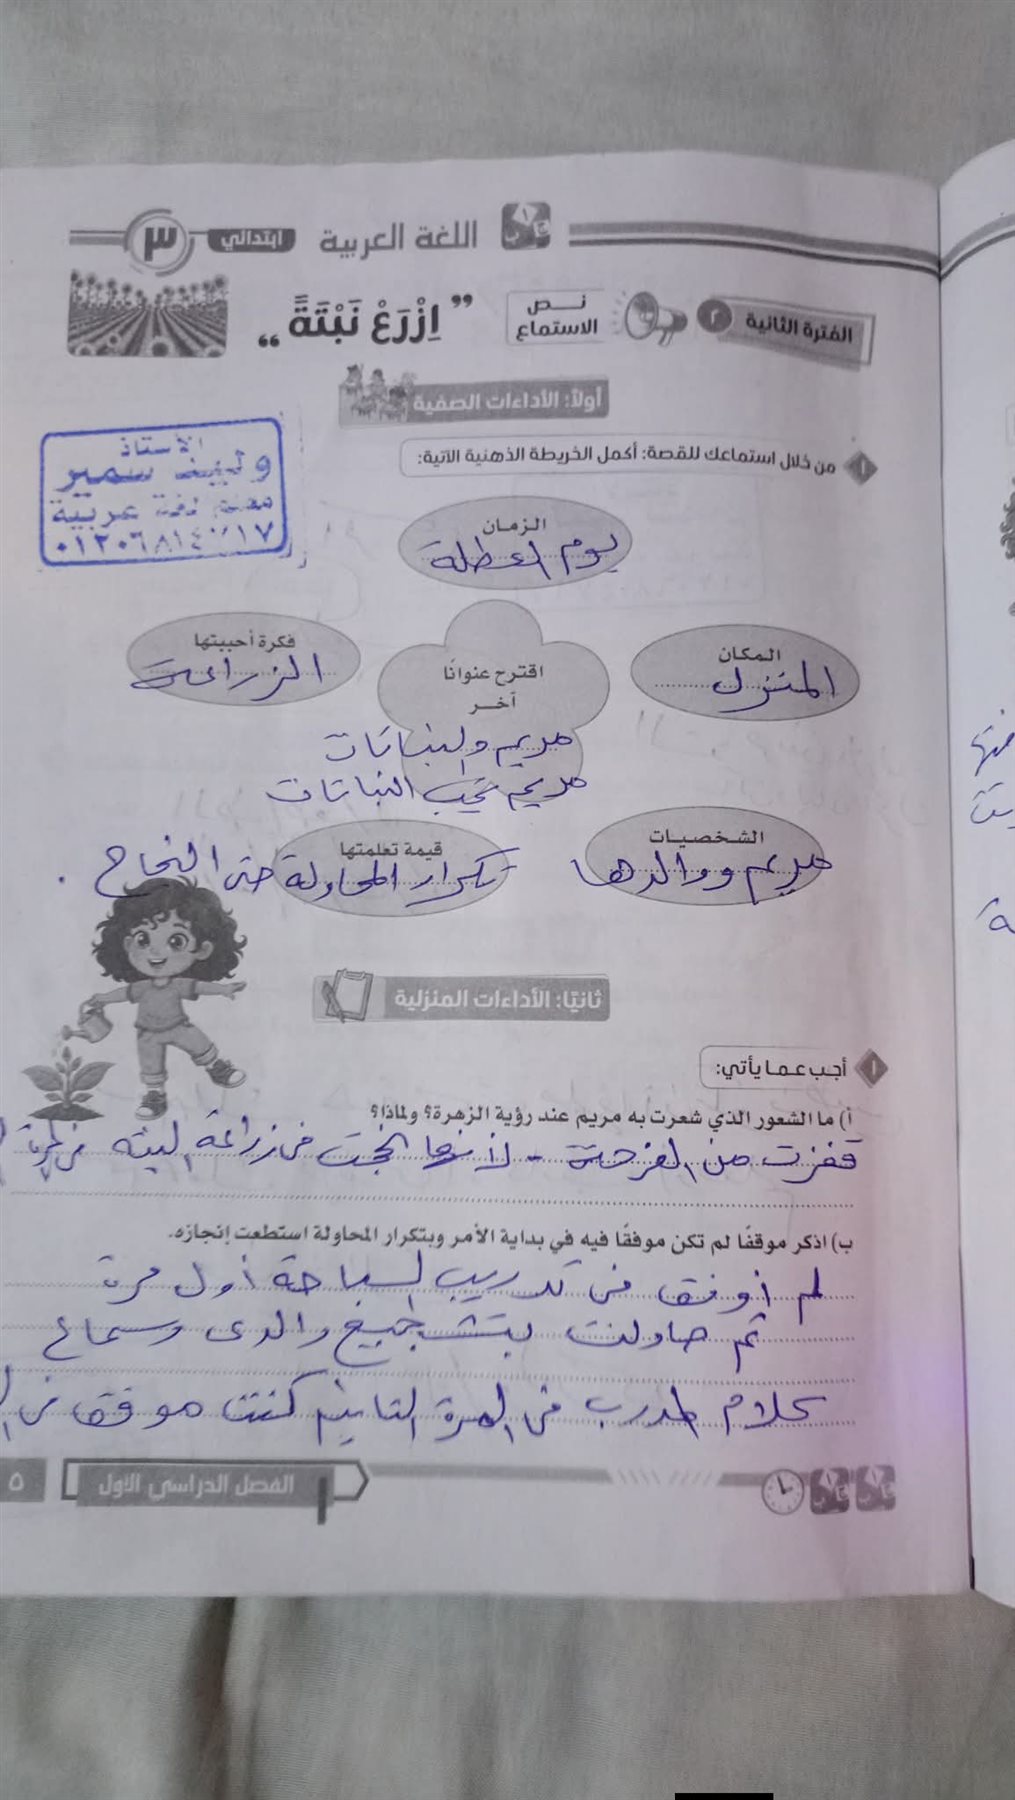 اللغة العربية
ابتدائي
٣
الفترة الثانية ٢
نص الاستماع
"اِزْرَعْ نَبْتَةً"
أولاً: الأداءات الصفية
١ من خلال استماعك للقصة: أكمل الخريطة الذهنية الآتية:
الأستاذ
وليد سمير
معلم لغة عربية
الزمان
يوم العطلة
المكان
المنزل
فكرة أحببتها
الزراعة
اقترح عنوانًا
آخر
مريم والنباتات
مريم تحب النباتات
الشخصيات
مريم ووالدها
قيمة تعلمتها
تكرار المحاولة حتى النجاح .
ثانيًا: الأداءات المنزلية
١ أجب عما يأتي:
أ) ما الشعور الذي شعرت به مريم عند رؤية الزهرة؟ ولماذا؟
قفزت من الفرحة - لأنها نجحت فى زراعة
ب) اذكر موقفًا لم تكن موفقًا فيه في بداية الأمر وبتكرار المحاولة استطعت إنجازه.
لم أوفق فى تدريب السباحة أول مرة
ثم حاولت بتشجيع والدى وسماع
كلام المدرب فى المرة الثانية كنت موفق فى
الفصل الدراسي الأول
٥